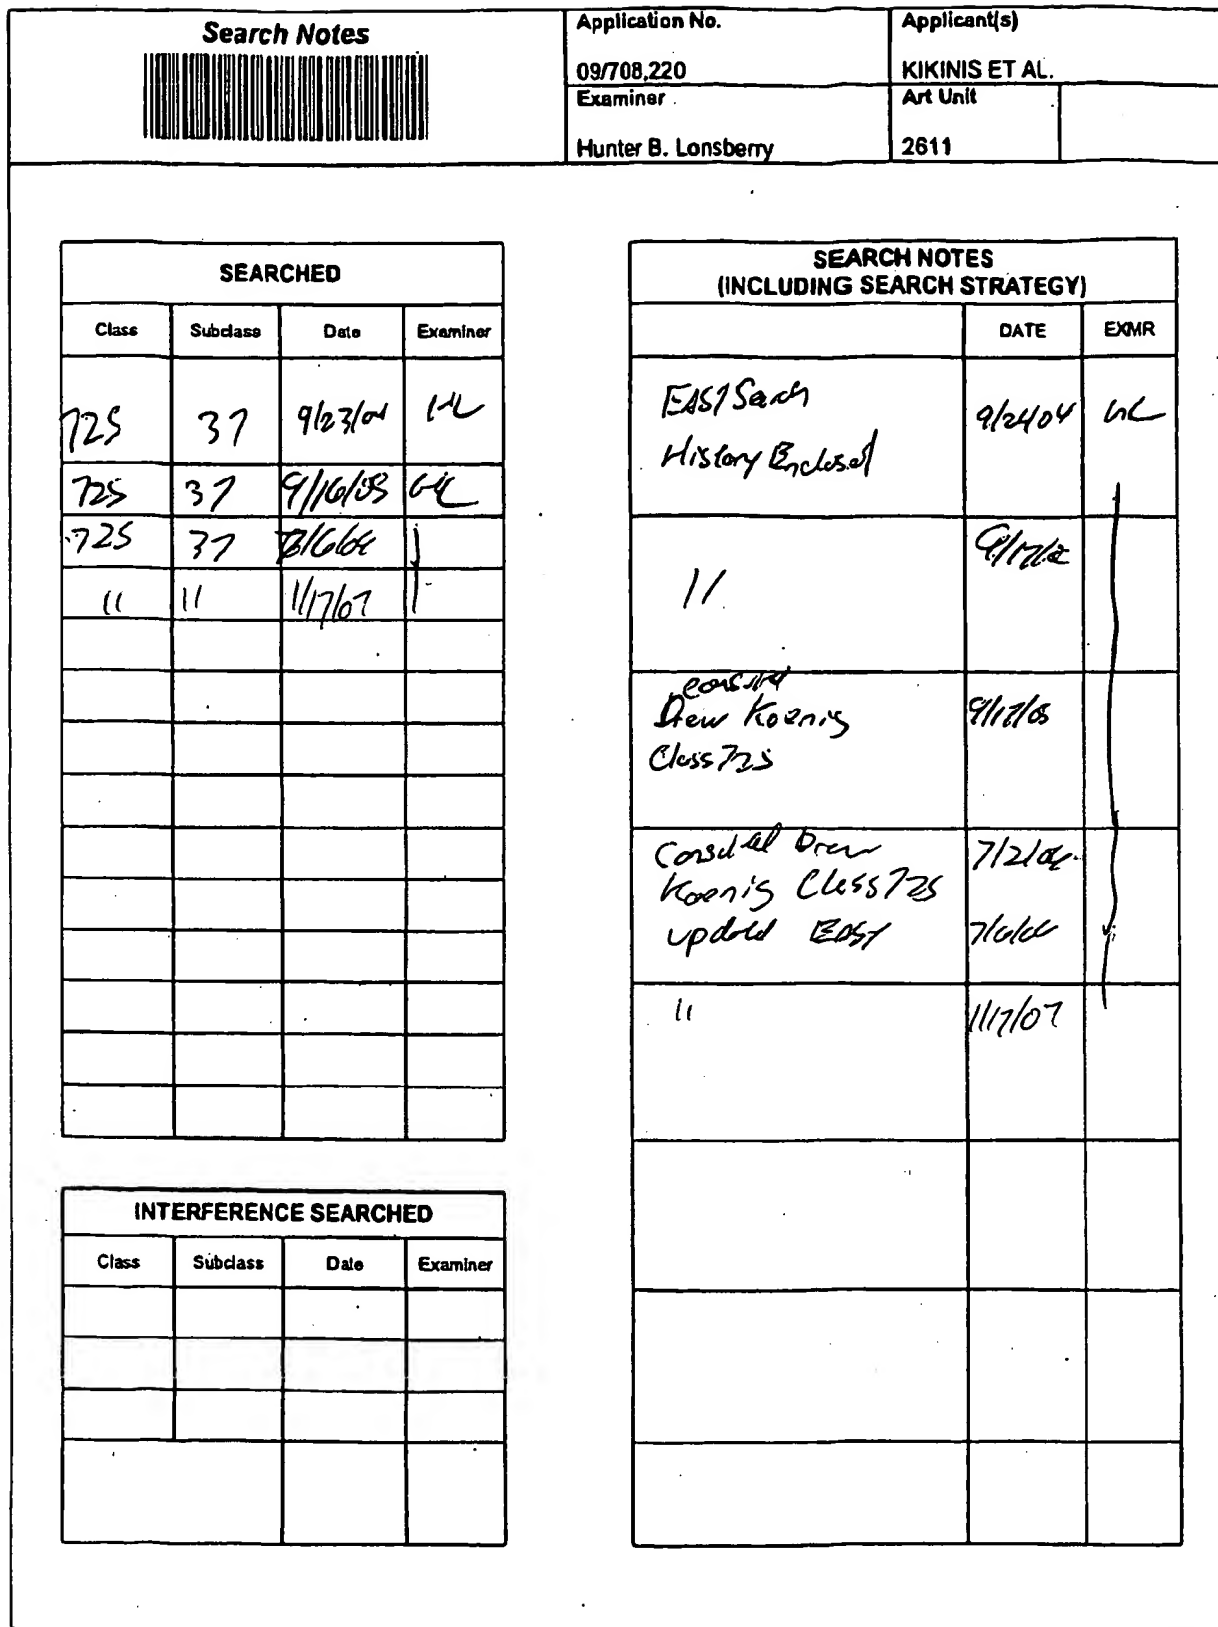 Search Notes
Application No.
09/708,220
Applicant(s)
KIKINIS ET AL.
Examiner
Hunter B. Lonsberry
Art Unit
2611
SEARCHED
Class Subclass Date Examiner
725 37 9/23/04 HL
725 37 9/16/05 HL
725 37
11 11 1/17/07
INTERFERENCE SEARCHED
Class Subclass Date Examiner
SEARCH NOTES
(INCLUDING SEARCH STRATEGY)
DATE EXMR
EAST Search
History Enclosed
9/24/04 HL
11
consulted
Drew Koenig
Class 725
9/17/05
Consulted Drew
Koenig Class 725
updated EAST
11 1/17/07